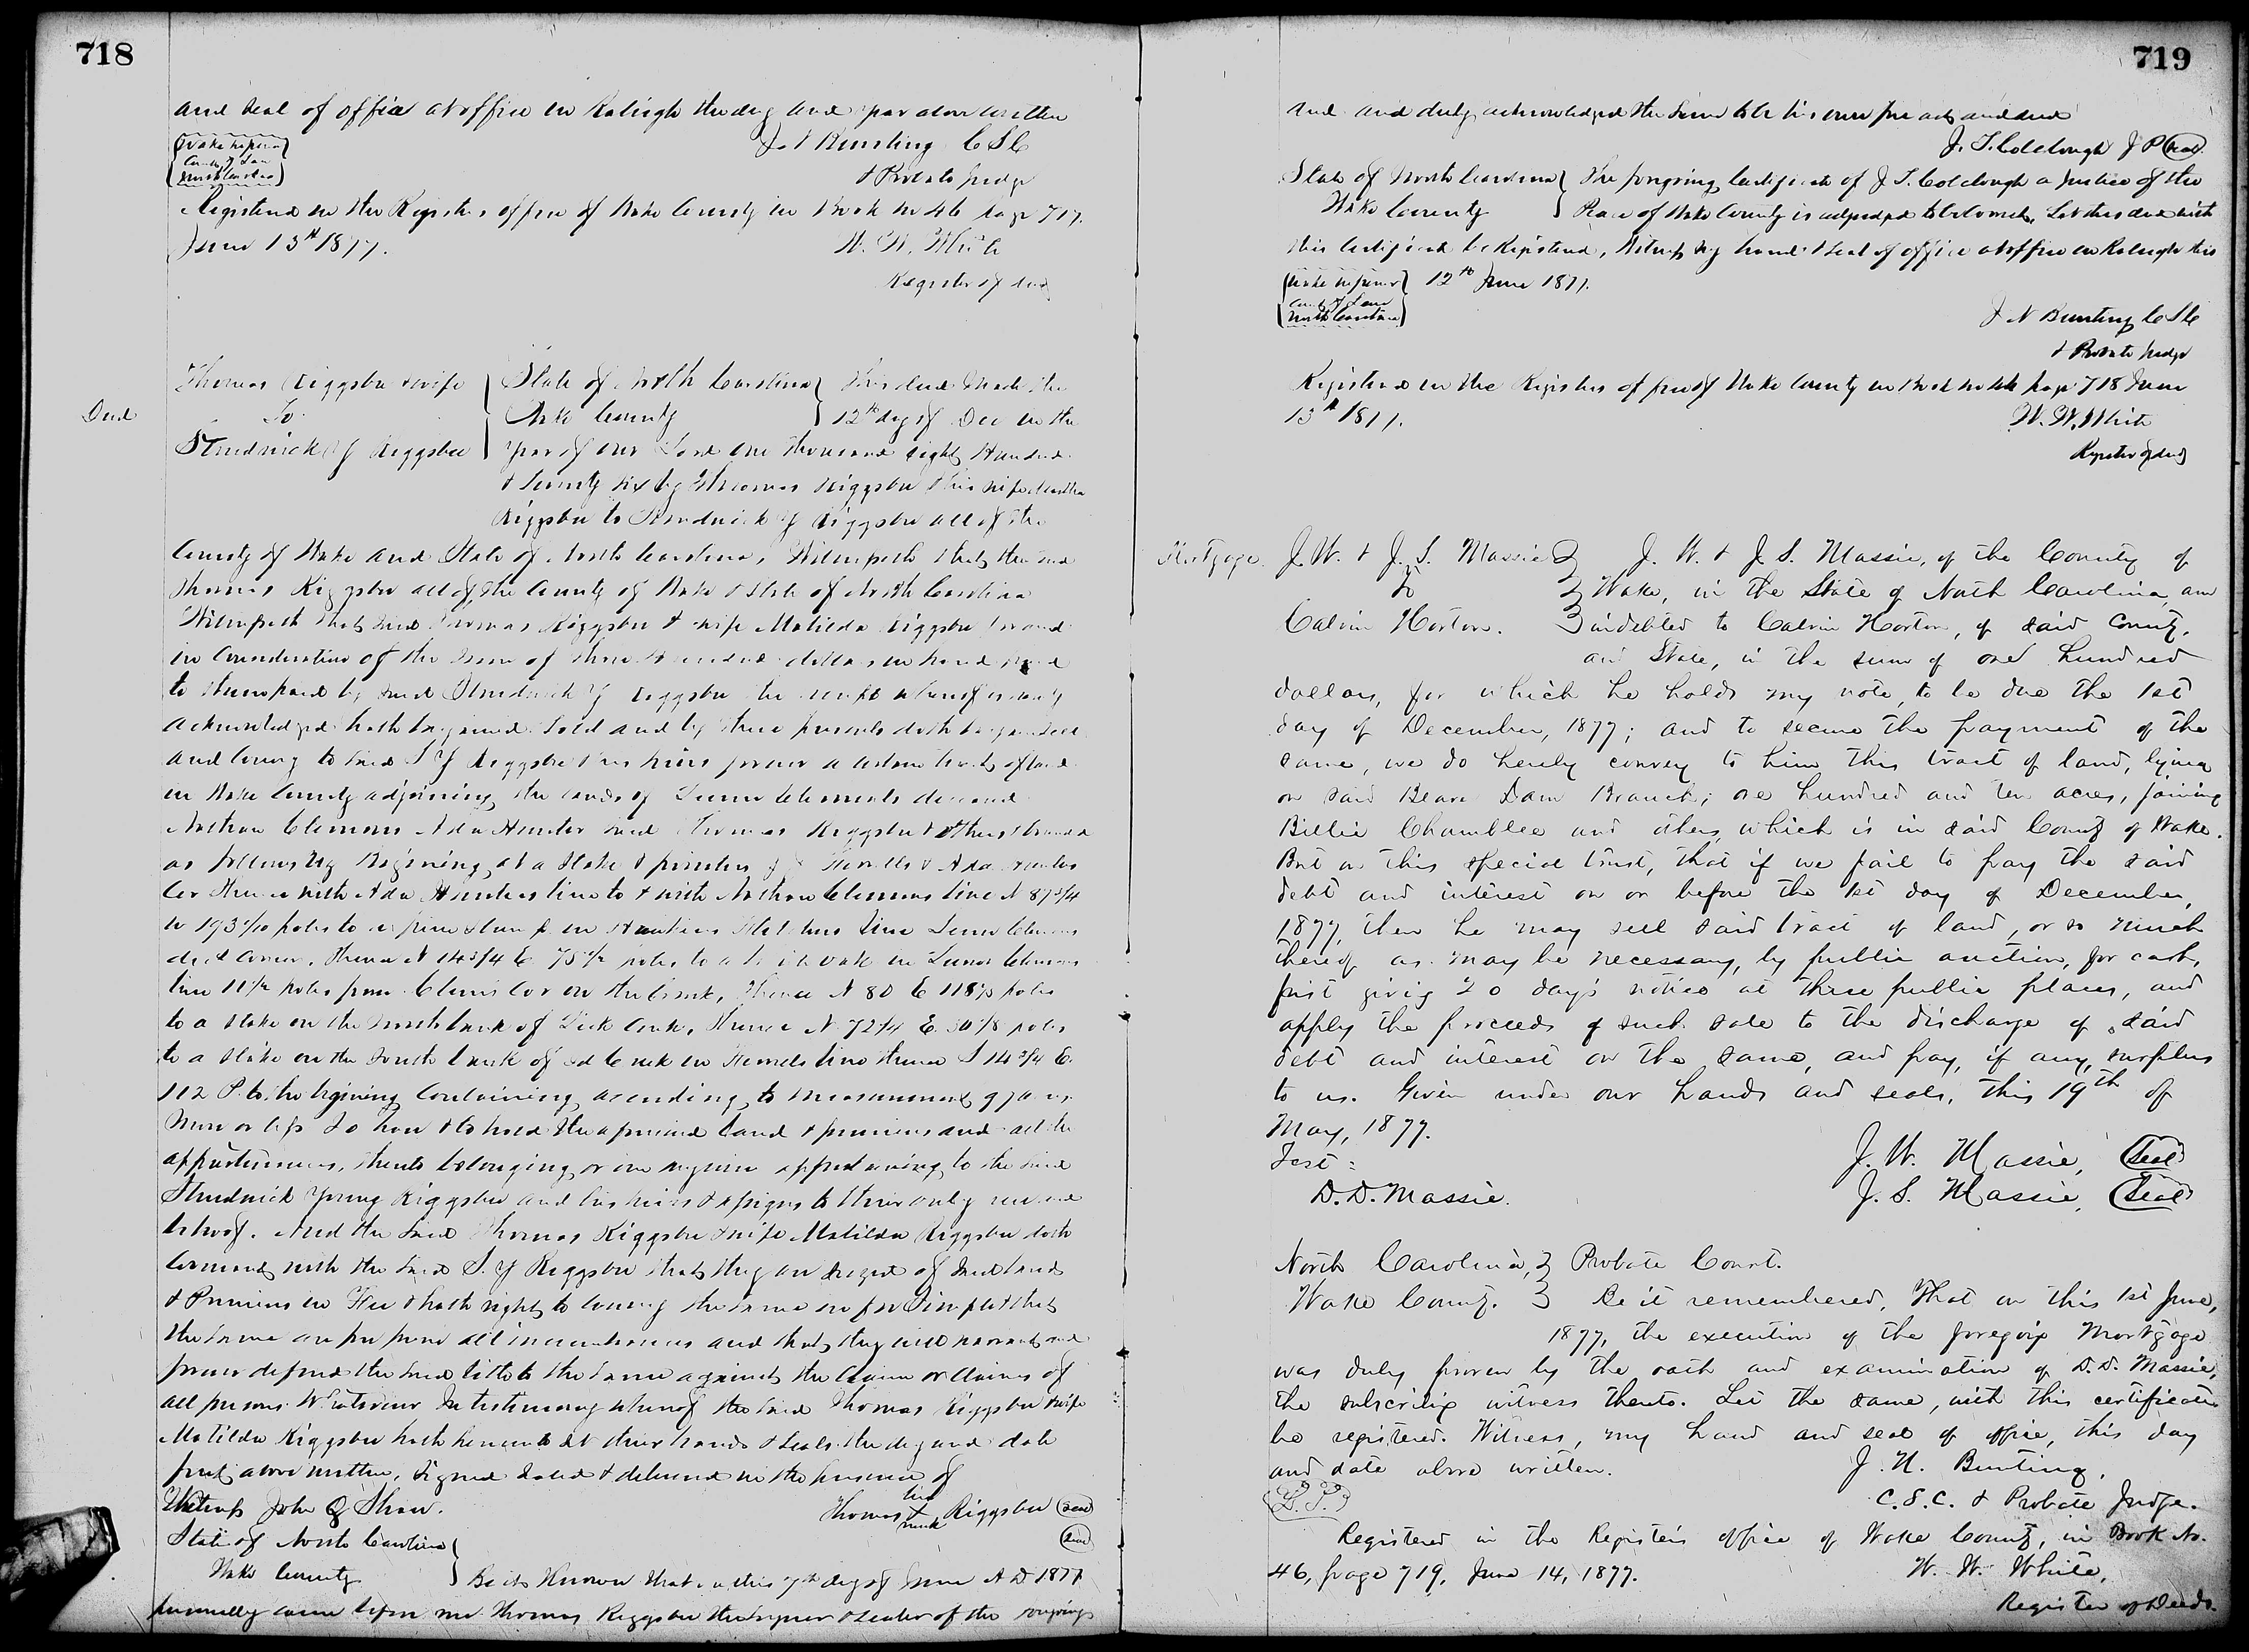 718
and seal of office at office in Raleigh the day and year above written
Wake Superior
Court of Law
North Carolina
J. N Bunting C S C
& Probate Judge
Registered in the Registers office of Wake County in Book No 46 page 717.
June 13th 1877.
W. W. White
Register of deeds
Deed
Thomas Riggsbee & wife
To
Strudwick Y Riggsbee
State of North Carolina
Wake County
This deed made the
12th day of Dec in the
year of our Lord one thousand eight hundred
& Seventy six by Thomas Riggsbee & his wife Matilda
Riggsbee to Strudwick Y Riggsbee all of the
County of Wake and State of North Carolina, Witnesseth that the said
Thomas Riggsbee all of the County of Wake & State of North Carolina
Witnesseth that said Thomas Riggsbee & wife Matilda Riggsbee for and
in Consideration of the Sum of three Hundred dollars in hand paid
to them paid by said Strudwick Y Riggsbee the receipt whereof is hereby
acknowledged hath bargained Sold and by these presents doth bargain sell
and convey to said S Y Riggsbee & his heirs forever a certain tract of land
in Wake County adjoining the lands of Clements deceased
Nathan Clemons Ada Hunter said Thomas Riggsbee & others bounded
as follows viz Begining at a Stake & pointers & Ada Hunters
Cor thence with Ada Hunters line to & with Nathan Clemons line N 87 3/4
W 193 poles to a pine stump in line Clemons
decd Corner, thence N 14 3/4 E 75 1/2 poles to a oak in Clemons
line 11 1/2 poles from Clemons Cor on the bank, thence N 80 E 118 poles
to a Stake on the north bank of Creek, thence N 72 E. poles
to a stake on the south bank of sd Creek in line thence S 14 3/4 E.
112 P. to the begining Containing according to measurement 97 acres
more or less To have & to hold the aforesaid land & premises and all the
appurtenances, thereto belonging or in any wise appertaining to the said
Strudwick Young Riggsbee and his heirs & assigns to their only use and
behoof. And the said Thomas Riggsbee & wife Matilda Riggsbee doth
Covenant with the said S. Y Riggsbee that they are seized of said land
& Premises in Fee & hath right to convey the same in fee Simple & that
the same are free from all incumbrances and that they will warrant and
forever defend the said title to the same against the Claim or Claims of
all persons Whatsoever In testimony whereof the said Thomas Riggsbee & wife
Matilda Riggsbee hath hereunto set their hands & seals the day and date
first above written, Signed Sealed & delivered in the presence of
Witness John Q Shaw.
Thomas his X mark Riggsbee seal
seal
State of North Carolina
Wake County
Be it Known that on this 7th day of June A D 1877
personally came before me Thomas Riggsbee the signer & sealer of the foregoing
719
deed and duly acknowledged the same to be his own free act and deed
J. T. Colclough J P seal
State of North Carolina
Wake County
The foregoing Certificate of J T. Colclough a Justice of the
Peace of Wake County is adjudged to be Correct, Let this deed with
this Certificate be Registered, Witness my hand & Seal of office at office in Raleigh this
Wake Superior
Court of Law
North Carolina
12th June 1877.
J N Bunting C S C
& Probate Judge
Registered in the Registers office of Wake County in Book No 46 page 718 June
13th 1877.
W. W. White
Register of deeds
Mortgage.
J. W. & J. S. Massie
To
Calvin Horton.
J. W. & J. S. Massie, of the County of
Wake, in the State of North Carolina, am
indebted to Calvin Horton, of said County,
and State, in the sum of one hundred
dollars, for which he holds my note, to be due the 1st
day of December, 1877; and to secure the payment of the
same, we do hereby convey to him this tract of land, lying
on said Beave Dam Branch; one hundred and ten acres, joining
Billie Chamblee and others, which is in said County of Wake.
But on this special trust, that if we fail to pay the said
debt and interest on or before the 1st day of December,
1877, then he may sell said tract of land, or so much
thereof as may be necessary, by public auction, for cash,
first givig 20 day's notice at three public places, and
apply the proceeds of such sale to the discharge of said
debt and interest on the same, and pay, if any, surplus
to us. Given under our hands and seals, this 19th of
May, 1877.
Test:
D. D. Massie.
J. W. Massie, Seal
J. S. Massie, Seal
North Carolina,
Wake County.
Probate Court.
Be it remembered, That on this 1st June,
1877, the execution of the foregoig Mortgage
was duly proven by the oath and examination of D. D. Massie,
the subscribig witness thereto. Let the same, with this certificate
be registered. Witness, my hand and seal of office, this day
and date above written.
J. N. Bunting,
L. S.
C. S. C. & Probate Judge.
Registered in the Register's office of Wake County, in Book No.
46, page 719, June 14, 1877.
W. W. White,
Register of Deeds.